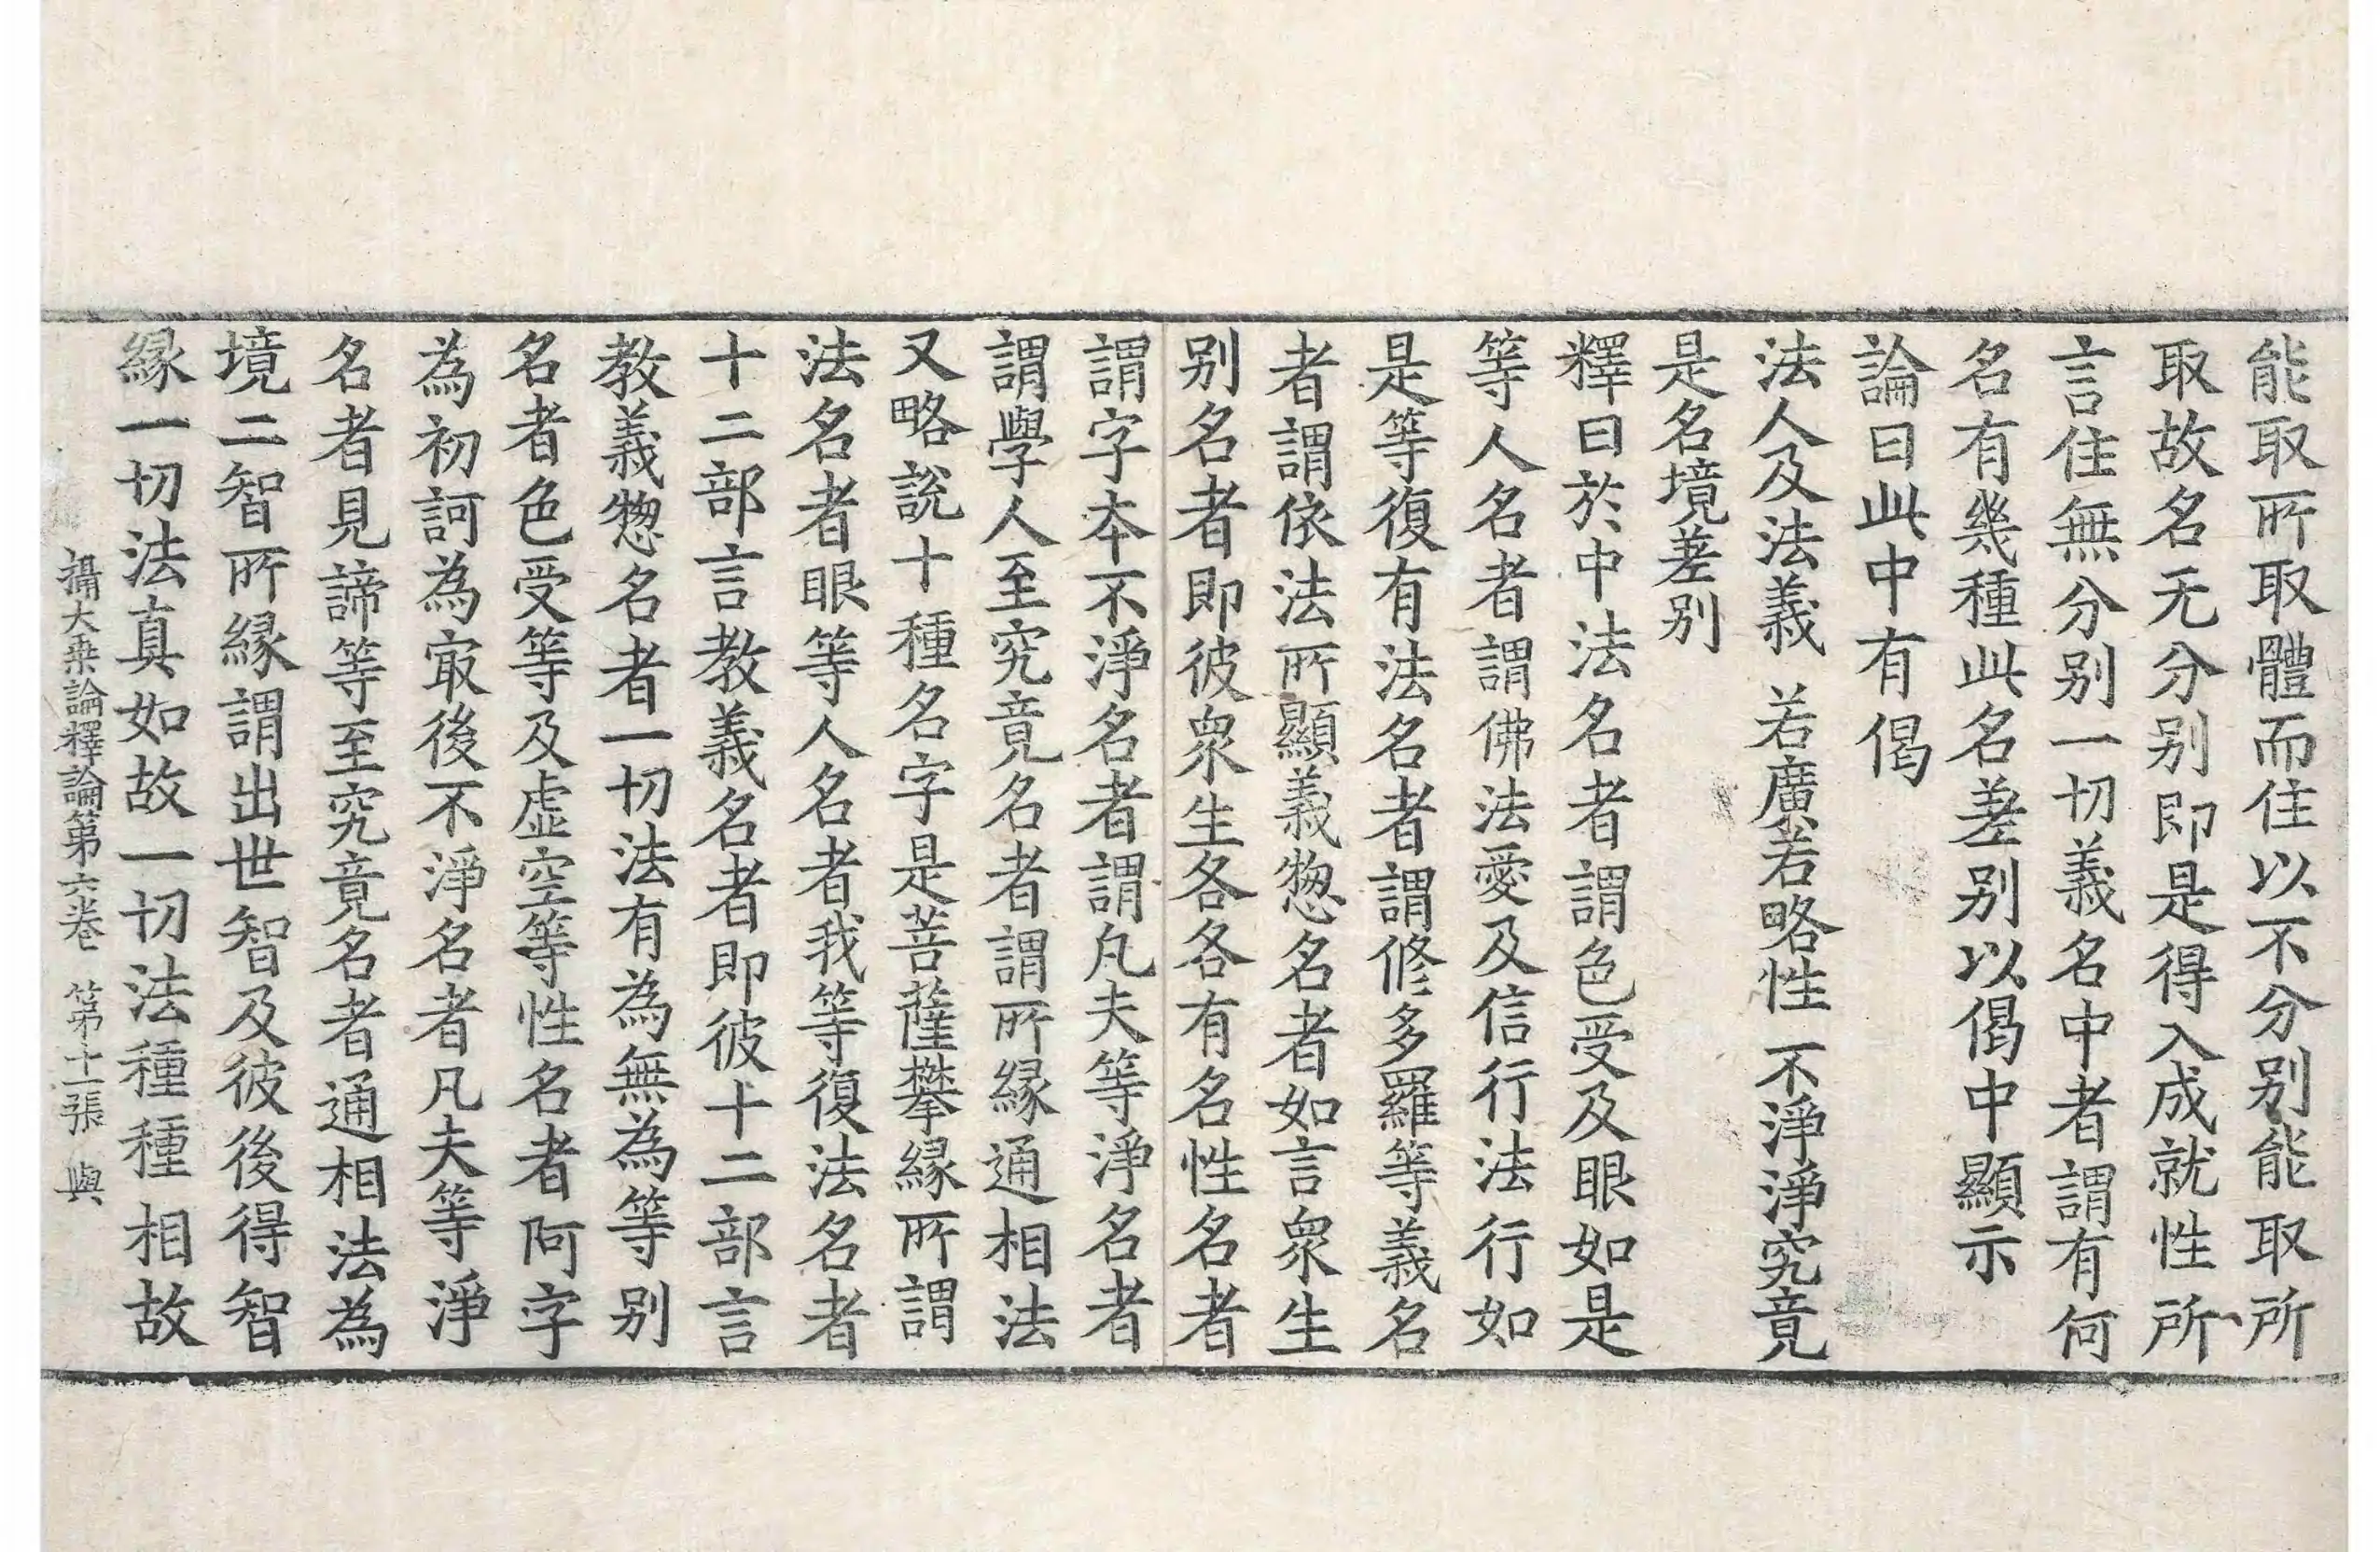 能取所取體而住以不分别能取所
取故名无分别即是得入成就性所
言住無分别一切義名中者謂有何
名有幾種此名差别以偈中顯示
論曰此中有偈
法人及法義　若廣若略性　不淨淨究竟
是名境差别
釋曰於中法名者謂色受及眼如是
等人名者謂佛法愛及信行法行如
是等復有法名者謂修多羅等義名
者謂依法所顯義惣名者如言衆生
别名者即彼衆生各各有名性名者
謂字本不淨名者謂凡夫等淨名者
謂學人至究竟名者謂所縁通相法
又略說十種名字是菩薩攀縁所謂
法名者眼等人名者我等復法名者
十二部言教義名者即彼十二部言
教義惣名者一切法有為無為等别
名者色受等及虛空等性名者阿字
為初訶為㝡後不淨名者凡夫等淨
名者見諦等至究竟名者通相法為
境二智所縁謂出世智及彼後得智
縁一切法真如故一切法種種相故
攝大乗論釋論第六卷　第十二張　與